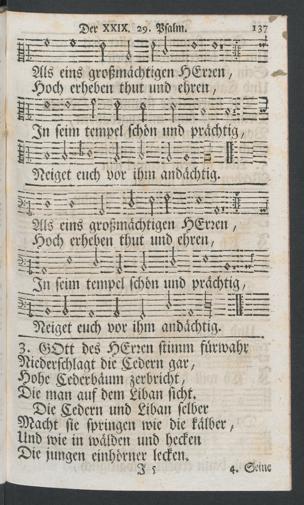 Der XXIX. 29. Psalm. 137
Als eins großmächtigen HErren,
Hoch erheben thut und ehren,
In seim tempel schön und prächtig,
Neiget euch vor ihm andächtig.
Als eins großmächtigen HErren,
Hoch erheben thut und ehren,
In seim tempel schön und prächtig,
Neiget euch vor ihm andächtig.
3. GOtt des HErren stimm fürwahr
Niederschlagt die Cedern gar,
Hohe Cederbäum zerbricht,
Die man auf dem Liban sicht.
Die Cedern und Liban selber
Macht sie springen wie die kälber,
Und wie in wälden und hecken
Die jungen einhörner lecken.
J 5 4. Seine